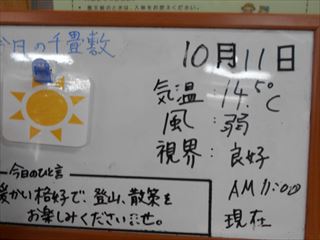 今日の千畳敷
10月11日
気温:14.5℃
風:弱
視界:良好
AM11:00
現在
今日のひと言
暖かい格好で、登山、散策を
お楽しみくださいませ。